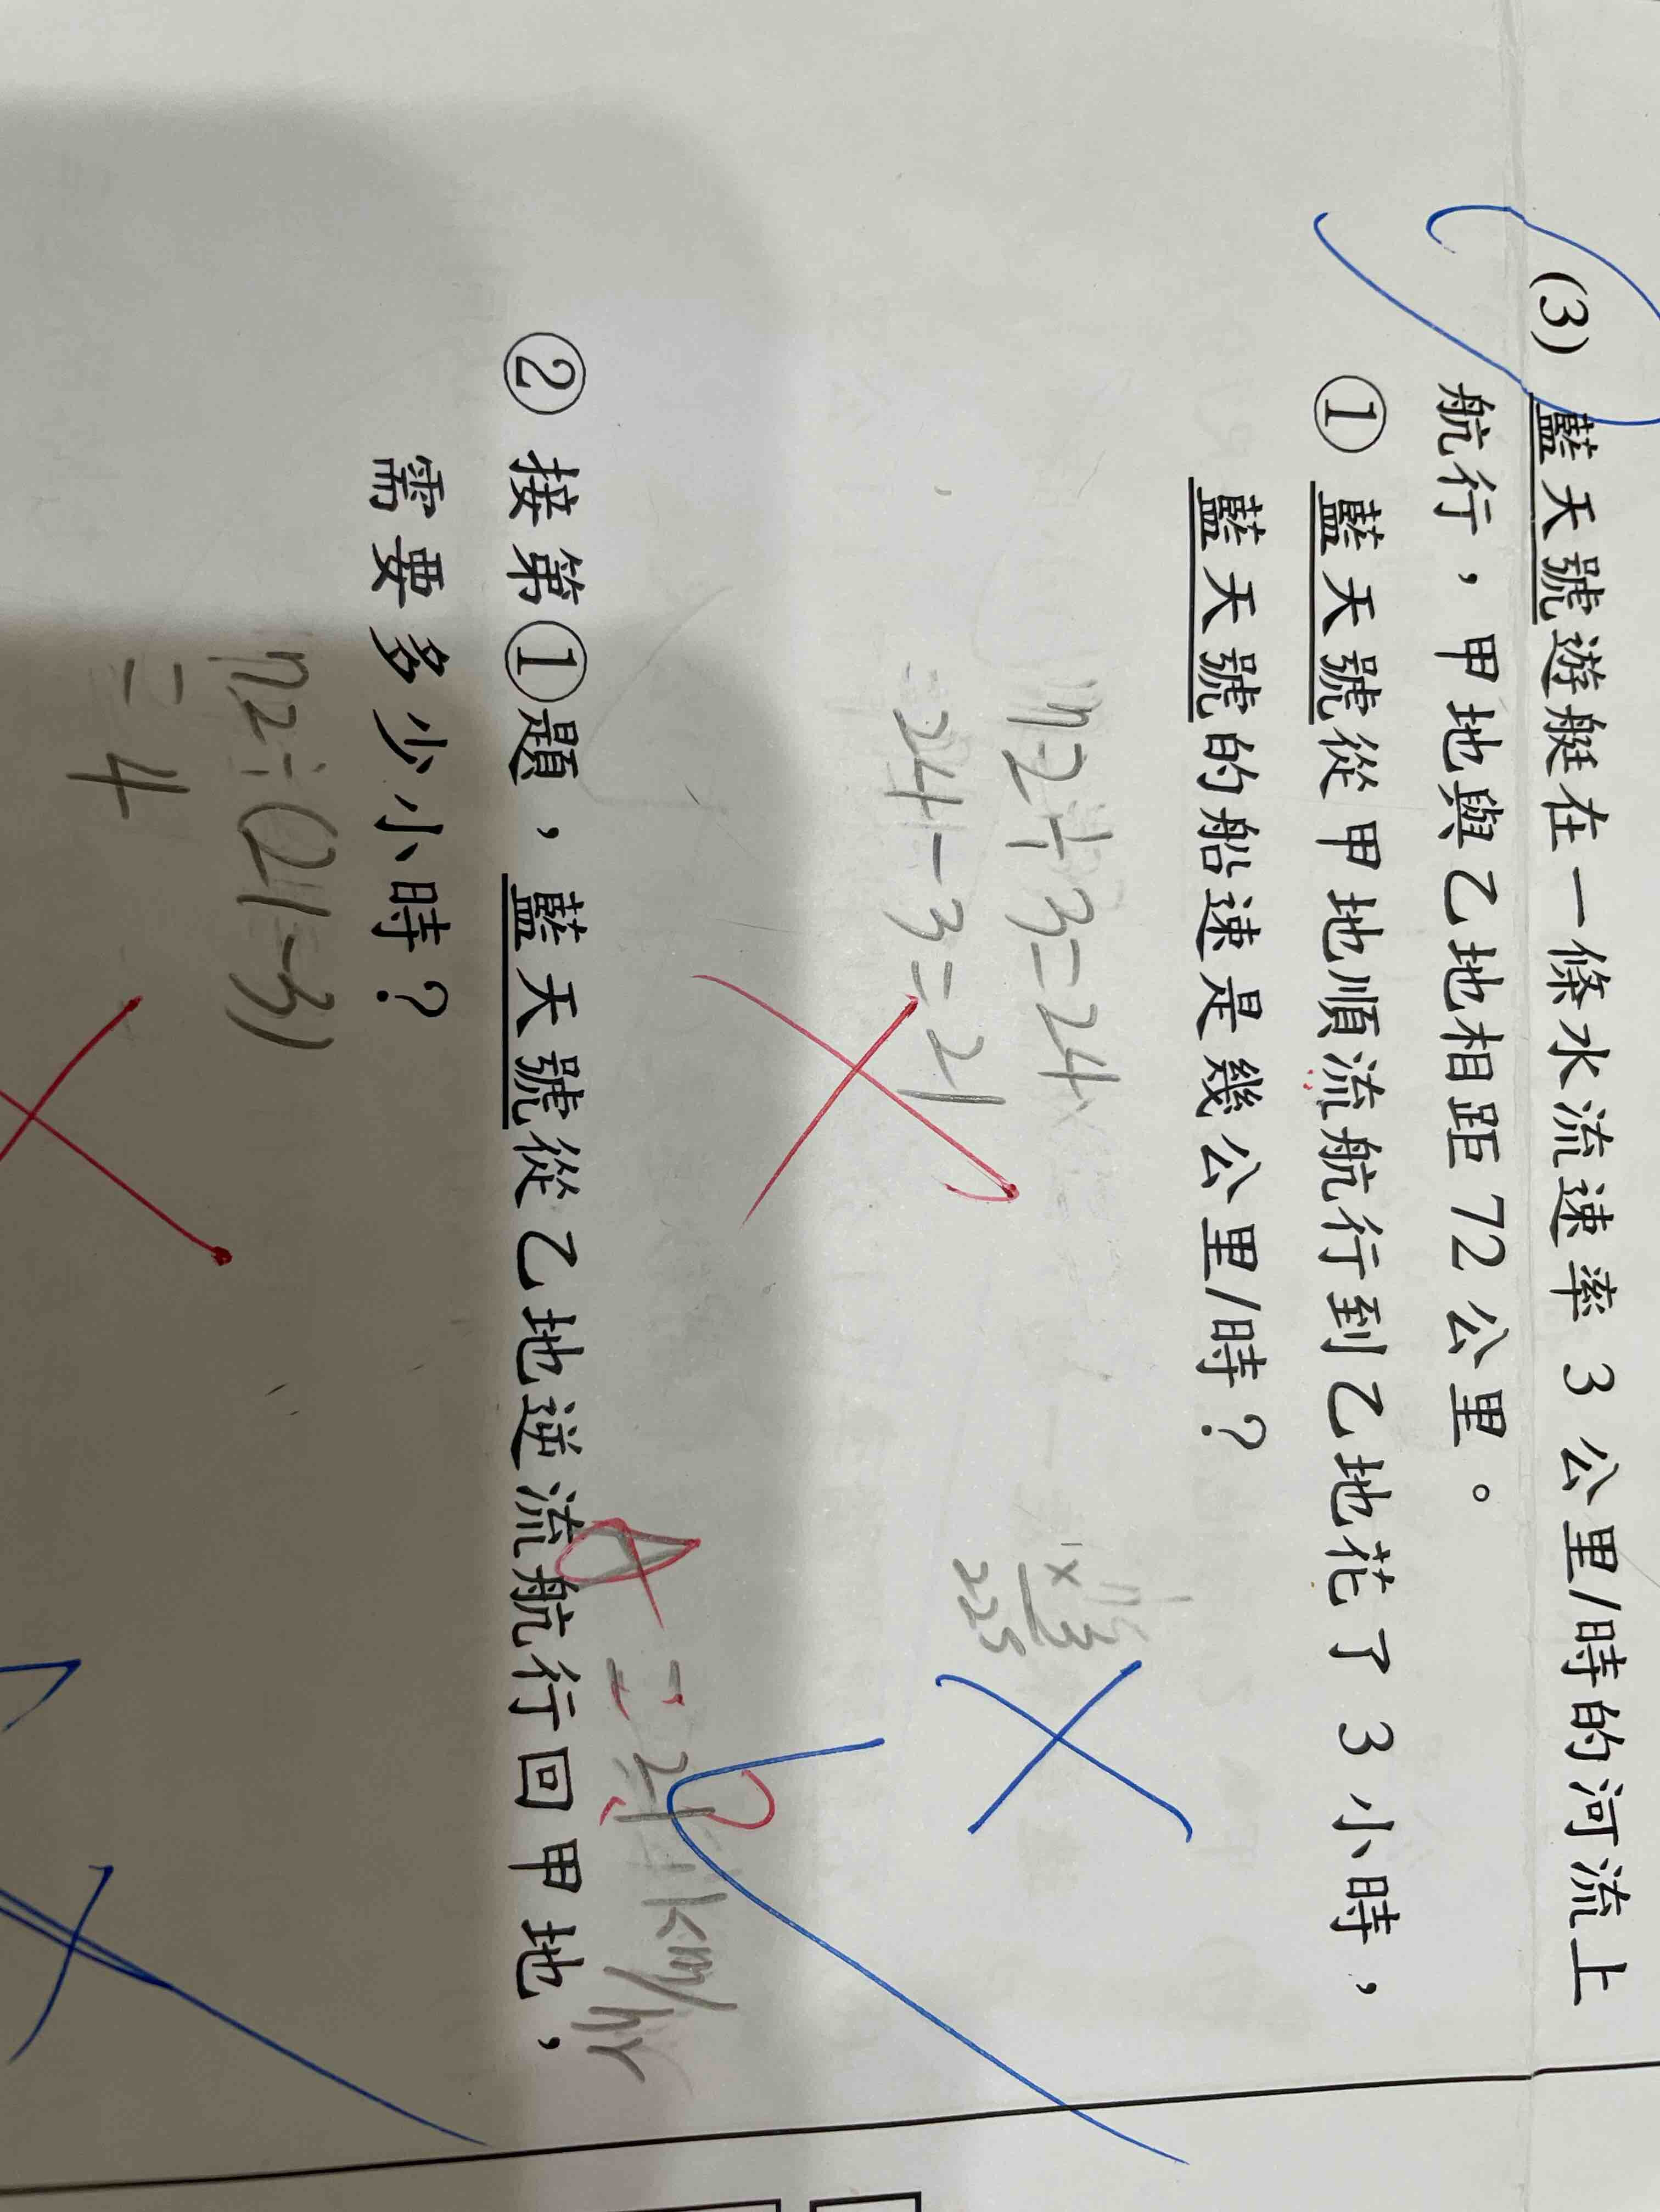 (3) 藍天號遊艇在一條水流速率 3 公里/時的河流上
航行，甲地與乙地相距 72 公里。
① 藍天號從甲地順流航行到乙地花了 3 小時，
藍天號的船速是幾公里/時？
72÷3=24
24-3=21
×3
225
A
=21km/hr
② 接第①題，藍天號從乙地逆流航行回甲地，
需要多少小時？
72÷(21-3)
=4